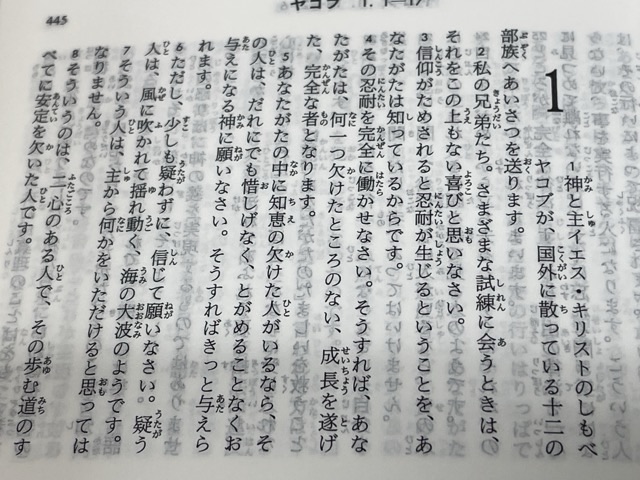 445
ヤコブ 1. 1—17
1
1神と主イエス・キリストのしもべ
ヤコブが、国外に散っている十二の
部族へあいさつを送ります。
2私の兄弟たち。さまざまな試練に会うときは、
それをこの上もない喜びと思いなさい。
3信仰がためされると忍耐が生じるということを、あ
なたがたは知っているからです。
4その忍耐を完全に働かせなさい。そうすれば、あな
たがたは、何一つ欠けたところのない、成長を遂げ
た、完全な者となります。
5あなたがたの中に知恵の欠けた人がいるなら、そ
の人は、だれにでも惜しげなく、とがめることなくお
与えになる神に願いなさい。そうすればきっと与えら
れます。
6ただし、少しも疑わずに、信じて願いなさい。疑う
人は、風に吹かれて揺れ動く、海の大波のようです。
7そういう人は、主から何かをいただけると思っては
なりません。
8そういうのは、二心のある人で、その歩む道のす
べてに安定を欠いた人です。